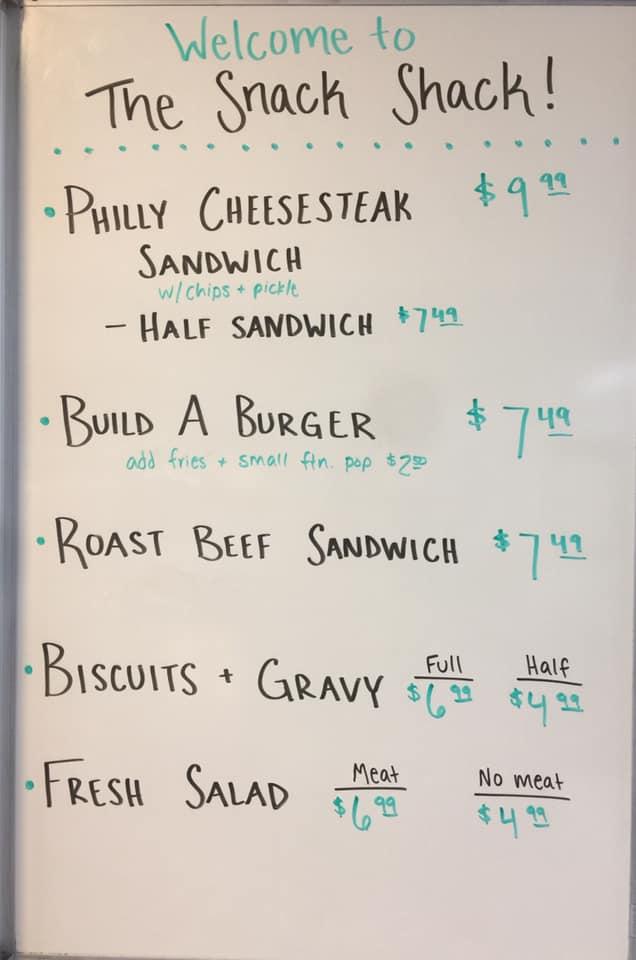 Welcome to
The Snack Shack!
• PHILLY CHEESESTEAK $9.99
SANDWICH
w/chips + pickle
- HALF SANDWICH $7.49
• BUILD A BURGER $7.49
add fries + small ftn. pop $2.50
• ROAST BEEF SANDWICH $7.49
• BISCUITS + GRAVY Full $6.99 Half $4.99
• FRESH SALAD Meat $6.99 No meat $4.99